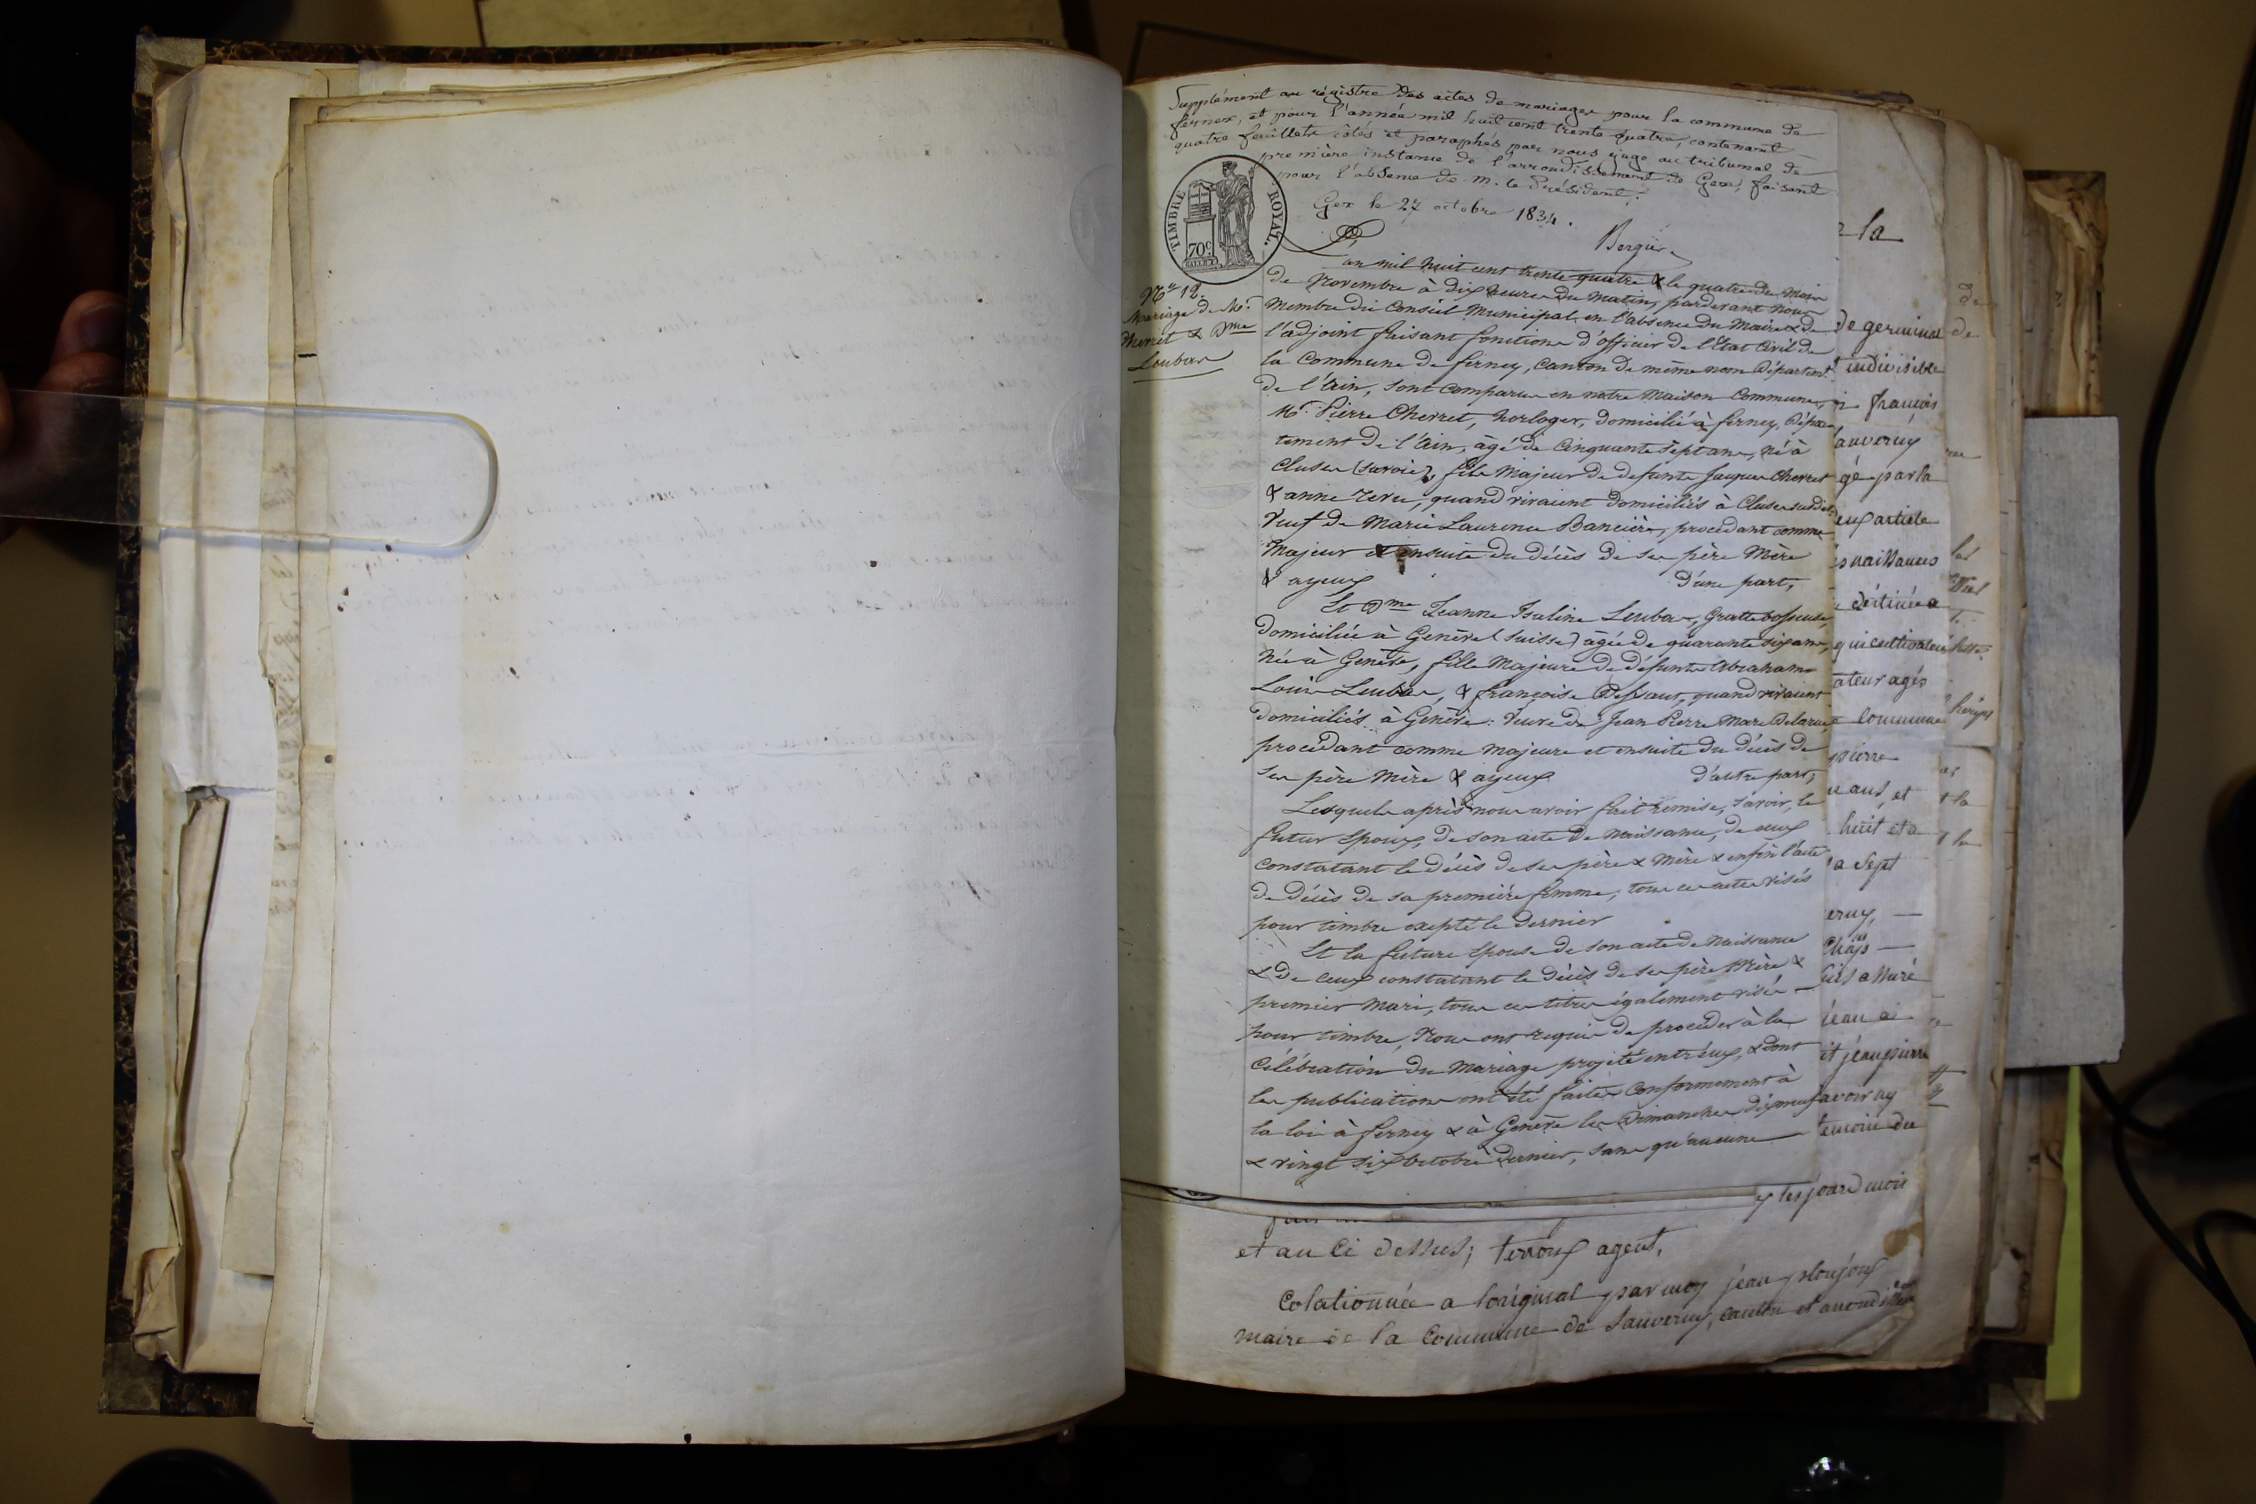 Supplément au régistre des actes de mariages pour la commune de
fernex, et pour l'année mil huit cent trente quatre, contenant
quatre feuillets côtés et paraphés par nous juge au tribunal de
première instance de l'arrondissement de Gex, faisant
pour l'absence de M. le Président.
Gex le 27 octobre 1834.
Bergier
TIMBRE ROYAL.
70c
N° 12.
Mariage de Mr.
Cherret & Dme
Leubas
an mil huit cent trente-quatre & le quatre du Mois
de Novembre à dix heures du Matin, pardevant Nous
Membre du Conseil Municipal en l'absence du Maire & de
l'adjoint faisant fonctions d'officier de l'Etat Civil de
la Commune de ferney, Canton de même nom Départemt
de l'Ain, sont comparus en notre Maison Commune,
Mr. Pierre Cherret, horloger, domicilié à ferney, Dépar
tement de l'Ain, âgé de Cinquante Sept ans, Né à
Cluses (Savoie), fils Majeur de defunts Jaques Cherret
& anne, quand vivaient domiciliés à Cluses susdit
Veuf de Marie Laurence Bancière, procédant comme
Majeur et ensuite du décès de ses père Mère
& ayeux d'une part,
Et Dme Jeanne Isaline Leubas, Grattebosseuse,
domiciliée à Genève (Suisse) âgée de quarante six ans,
Née à Genève, fille Majeure de défunts Abraham
Louis Leubas, & françoise Dessaux, quand vivaient
domiciliés à Genève: Veuve de Jean Pierre Marc Delarue,
procédant comme Majeure et ensuite du décès de
ses père Mère & ayeux d'autre part;
Lesquels après nous avoir fait remise, savoir, le
futur Epoux, de son acte de Naissance, de ceux
constatant le décès de ses père & Mère & enfin l'acte
de décès de sa première femme, tous ces actes visés
pour timbre excepté le dernier
Et la future Epouse de son acte de Naissance
& de ceux constatant le décès de ses père Mère &
premier Mari, tous ces titres également visés
pour timbre, Nous ont requis de procéder à la
Célébration du Mariage projeté entr'eux, & dont
les publications ont été faites conformément à
la loi à ferney & à Genève les Dimanches dix neuf
& vingt six Octobre dernier, sans qu'aucune
r la
de germinal
indivisible
françois
sauverny
gé par la
deux article
es naissances
destinée a
qui cultivateur
ateur agés
commune
pierre
ans, et
huit et a
a sept
erny,
jean pierre
avoir ay
temoin du
y les jour d mois
et an ci dessus; terroux agent,
Colationnée a loriginal par moy jean
maire de la Commune de Sauverny, canton et arrondissem